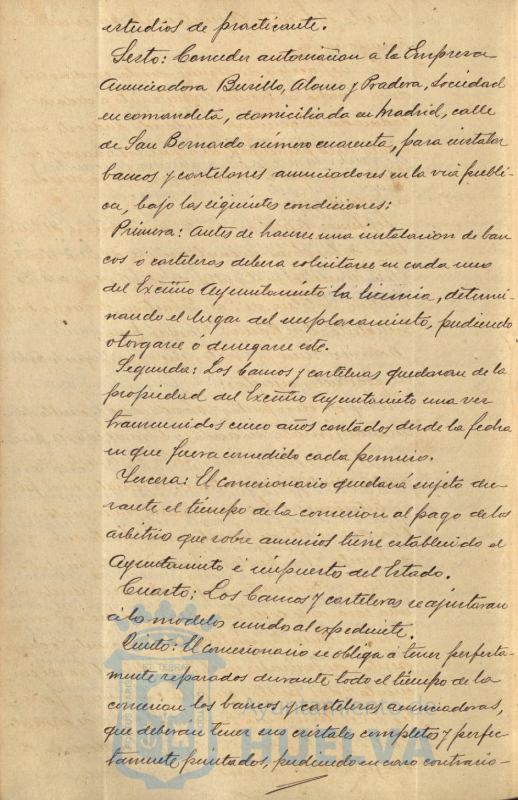 estudios de practicante.
Sexto: Conceder autorizacion á la Empresa
Anunciadora Busillo, Alonso y Pradera, Sociedad
en comandita, domiciliada en Madrid, calle
de San Bernardo número cuarenta, para instalar
bancos y cartelones anunciadores en la via públi-
ca, bajo las siguientes condiciones:
Primera: Antes de hacerse una instalacion de ban-
cos ó carteleras deberá solicitarse en cada una
del Excmo Ayuntamiento la licencia, determi-
nando el lugar del emplazamiento, pudiendo
otorgarse ó denegarse este.
Segunda: Los bancos y carteleras quedaran de la
propiedad del Excmo Ayuntamiento una vez
transcurridos cinco años contados desde la fecha
en que fuera concedido cada permiso.
Tercera: El concesionario quedará sujeto du-
rante el tiempo de la concesion al pago de los
arbitrios que sobre anuncios tiene establecido el
Ayuntamiento é impuestos del Estado.
Cuarto: Los bancos y carteleras se ajustaran
á los modelos unidos al expediente.
Quinto: El concesionario se obliga á tener perfecta-
mente reparados durante todo el tiempo de la
concesion los bancos y carteleras anunciadoras,
que deberán tener sus cristales completos y perfec-
tamente pintados, pudiendo en caso contrario-
Ayuntamiento
HUELVA